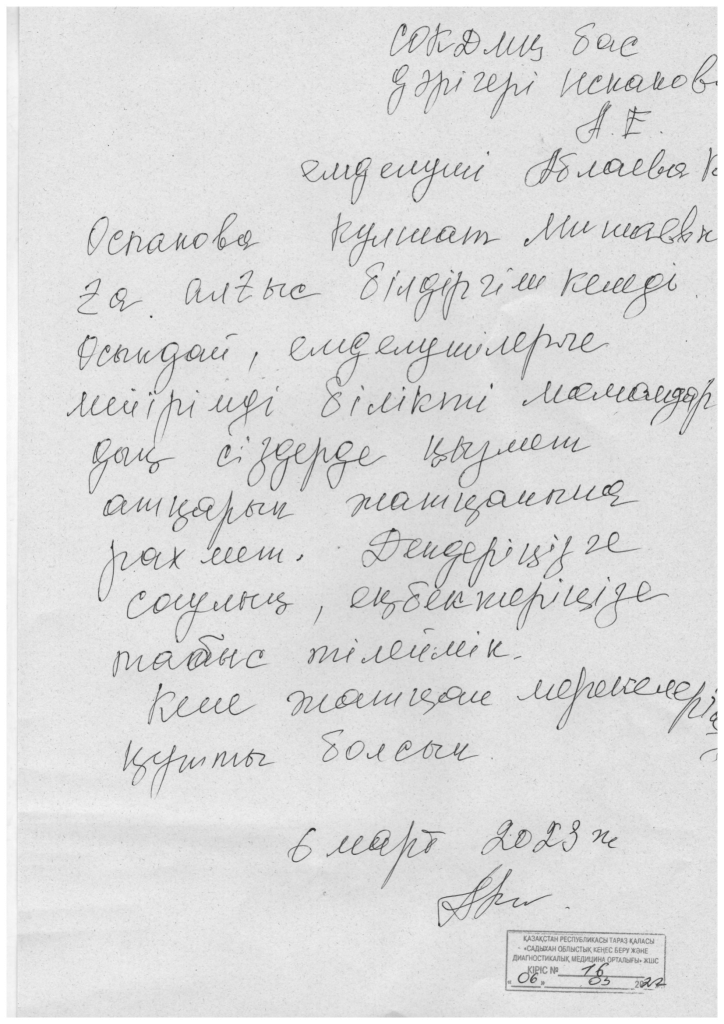 СОКДМЦ бас
дәрігері Искаков
А.Е.
емделуші Аблаева К
Оспанова Кулшат Мишаевн
ға алғыс білдіргім келеді
Осындай, емделушілерге
мейірімді білікті мамандар
дың сіздерде қызмет
атқарып жатқанына
рахмет. Дендеріңізге
саулық, еңбектеріңізге
табыс тілейміз.
Келе жатқан мерекелерің
құтты болсын
6 март 2023 ж
ҚАЗАҚСТАН РЕСПУБЛИКАСЫ ТАРАЗ ҚАЛАСЫ
«САДЫХАН ОБЛЫСТЫҚ КЕҢЕС БЕРУ ЖӘНЕ
ДИАГНОСТИКАЛЫҚ МЕДИЦИНА ОРТАЛЫҒЫ» ЖШС
КІРІС № 16
«06» 03